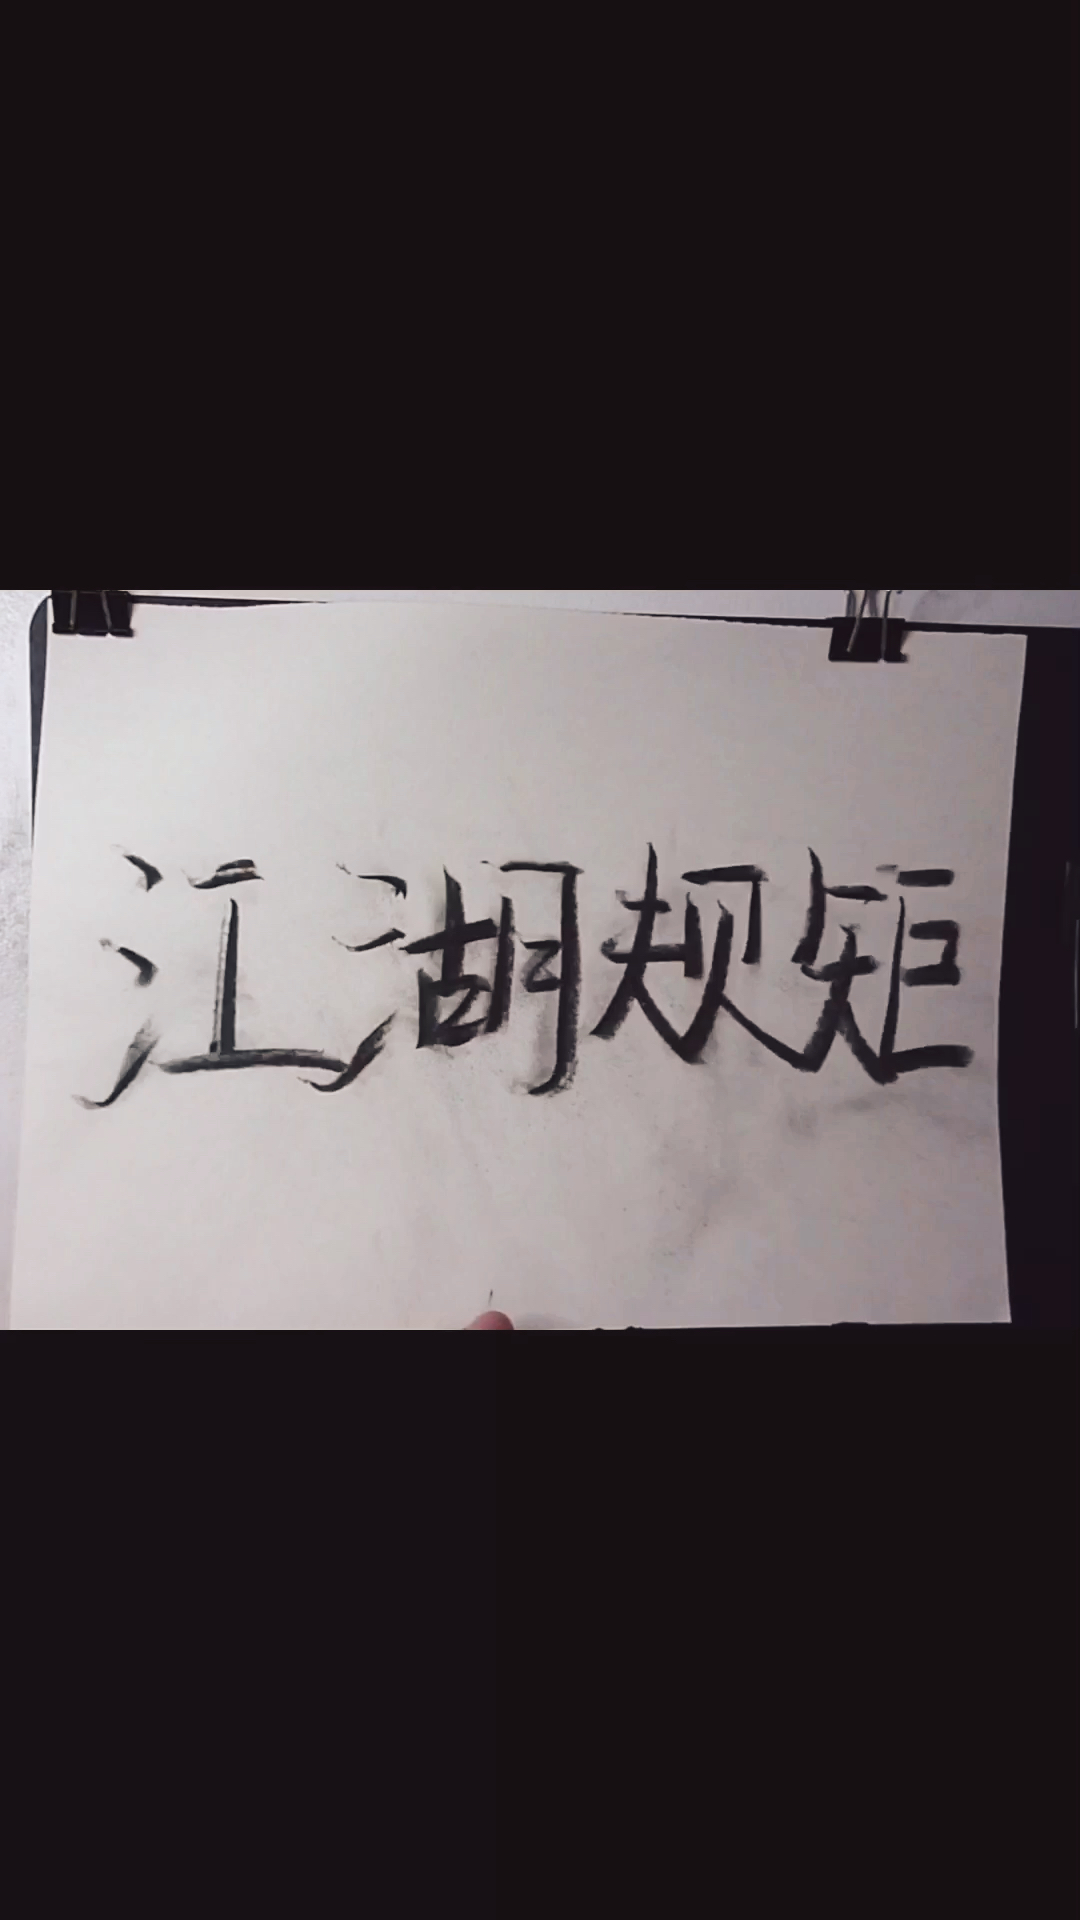 江湖规矩